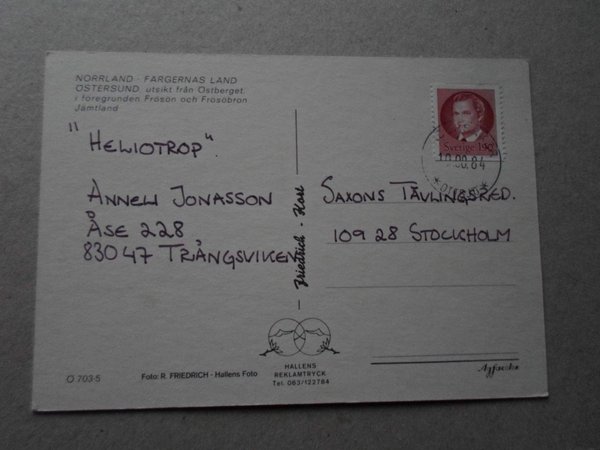 NORRLAND - FÄRGERNAS LAND
ÖSTERSUND, utsikt från Östberget.
i föregrunden Frösön och Frösöbron
Jämtland
"HELIOTROP".
ANNELI JONASSON
ÅSE 228
83047 TRÅNGSVIKEN
Friedrich - Kort
Sverige
SAXONS TÄVLINGSRED.
109 28 STOCKHOLM
HALLENS
REKLAMTRYCK
Tel. 063/122784
Ö 703-5
Foto: R. FRIEDRICH - Hallens Foto